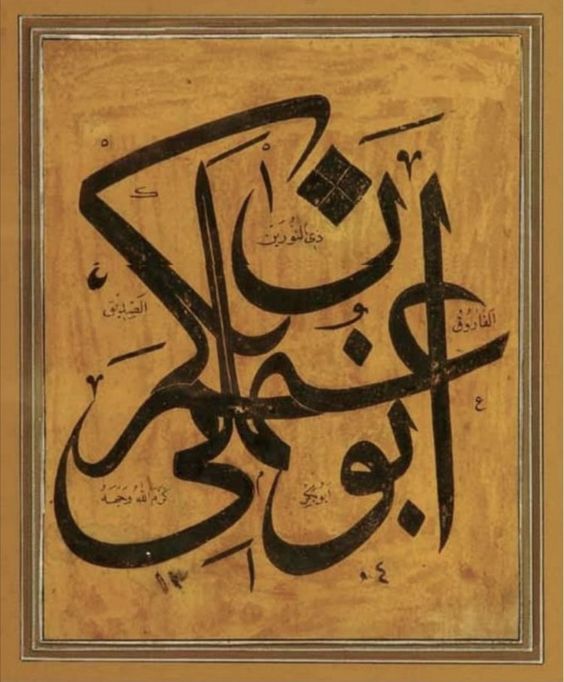 ابو بكر
عمر
عثمان
علي
ذي النورين
الصديق
الفاروق
كرم الله وجهه
ابوبكر